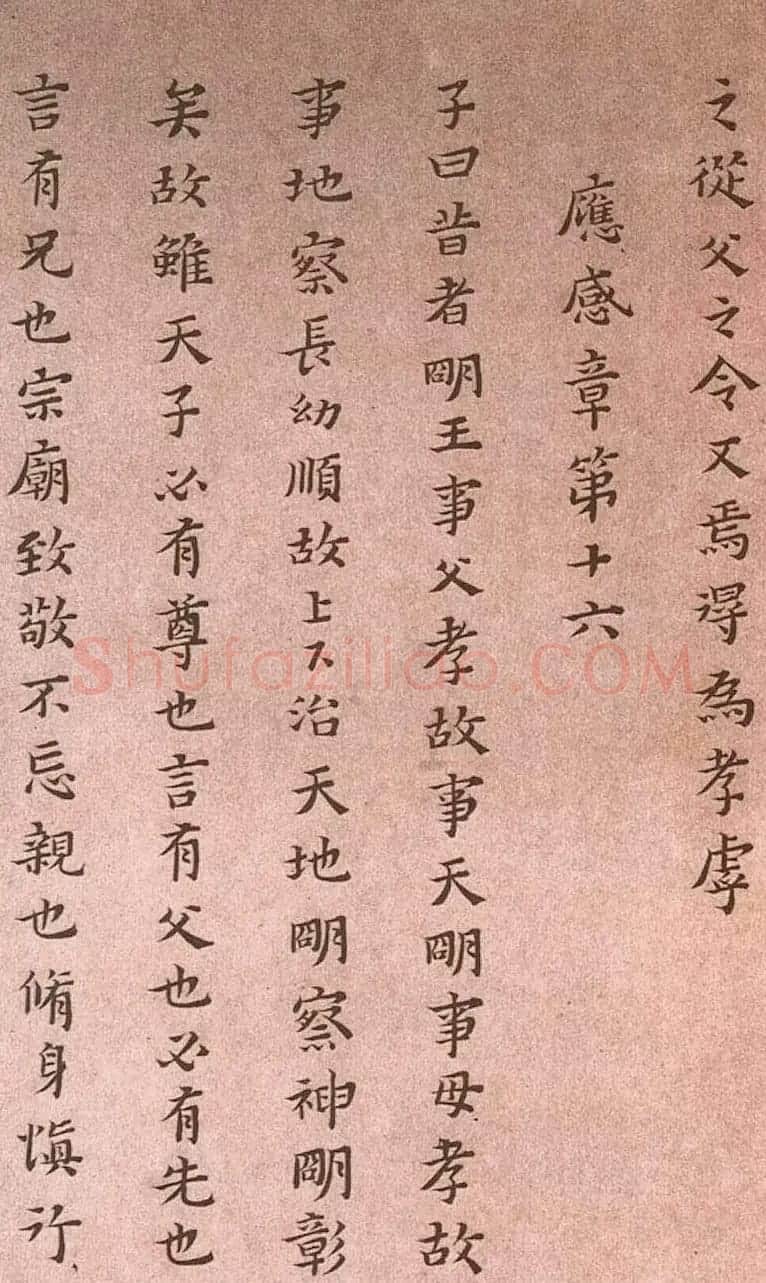 之從父之令又焉得為孝虖
應感章第十六
子曰昔者明王事父孝故事天明事母孝故
事地察長幼順故上下治天地明察神明彰
矣故雖天子必有尊也言有父也必有先也
言有兄也宗廟致敬不忘親也脩身慎行
Shufaziliao.COM